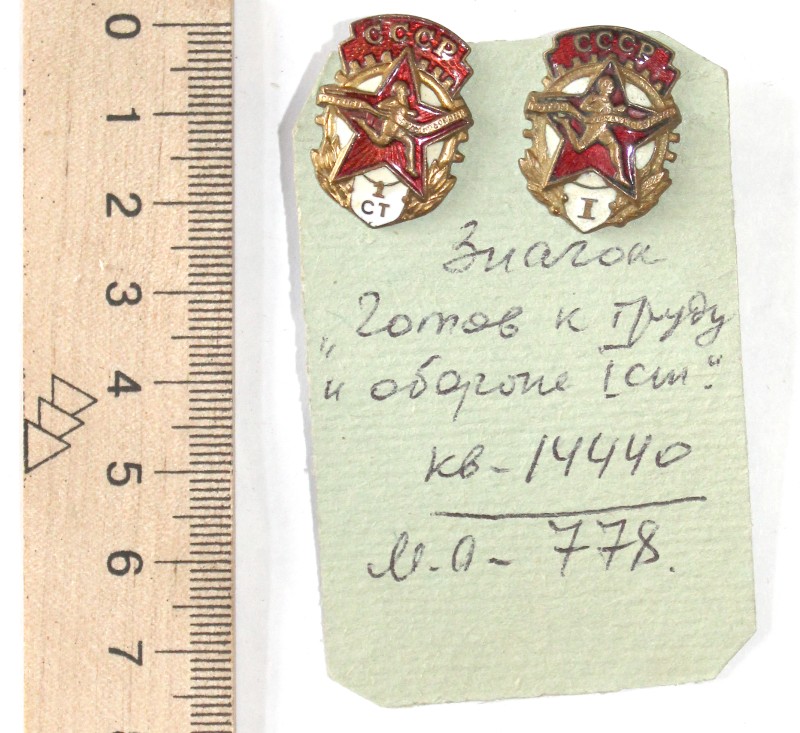 0
1
2
3
4
5
6
7
СССР
1
СТ
СССР
I
Значок
„Готов к труду
и обороне I ст."
кв-14440
М.А- 778.